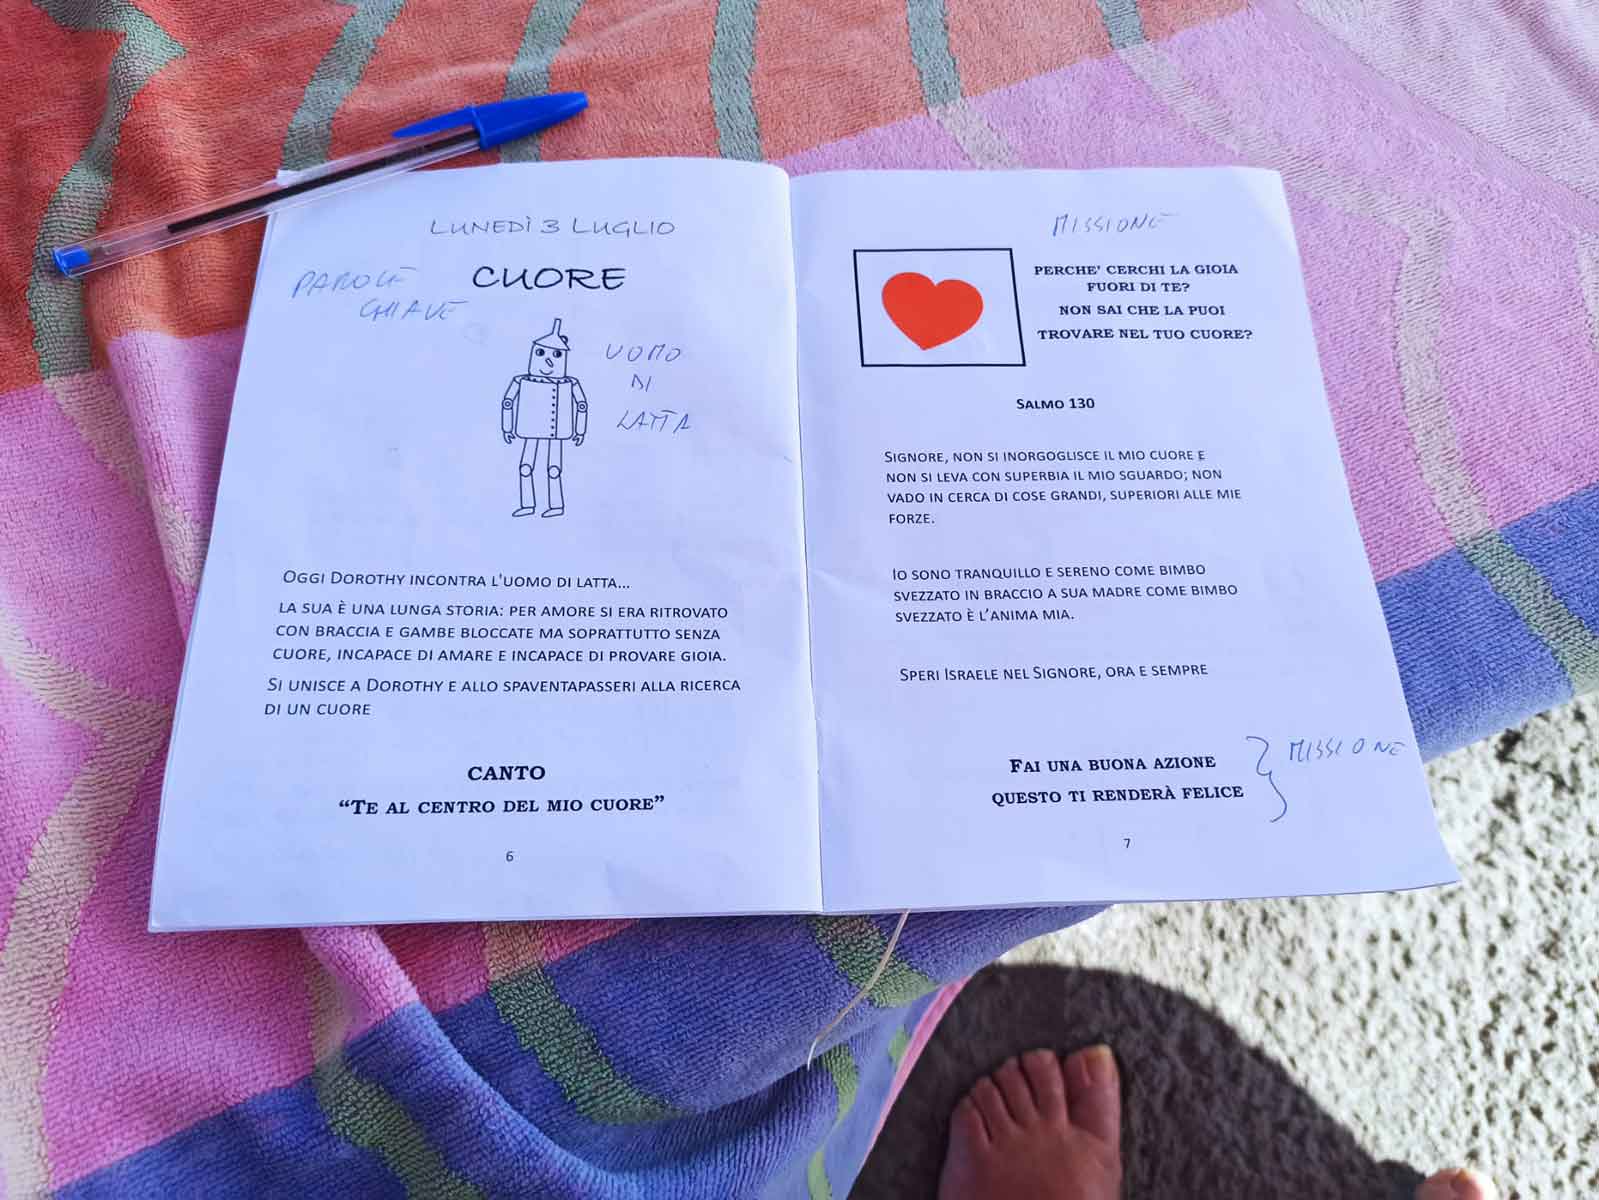 Lunedì 3 Luglio
PAROLE
CHIAVE
CUORE
UOMO
DI
LATTA
Oggi Dorothy incontra l'uomo di latta...
la sua è una lunga storia: per amore si era ritrovato
con braccia e gambe bloccate ma soprattutto senza
cuore, incapace di amare e incapace di provare gioia.
Si unisce a Dorothy e allo spaventapasseri alla ricerca
di un cuore
CANTO
“Te al centro del mio cuore”
6
MISSIONE
PERCHE’ CERCHI LA GIOIA
FUORI DI TE?
NON SAI CHE LA PUOI
TROVARE NEL TUO CUORE?
Salmo 130
Signore, non si inorgoglisce il mio cuore e
non si leva con superbia il mio sguardo; non
vado in cerca di cose grandi, superiori alle mie
forze.
Io sono tranquillo e sereno come bimbo
svezzato in braccio a sua madre come bimbo
svezzato è l’anima mia.
Speri Israele nel Signore, ora e sempre
Fai una buona azione
questo ti renderà felice
MISSIONE
7